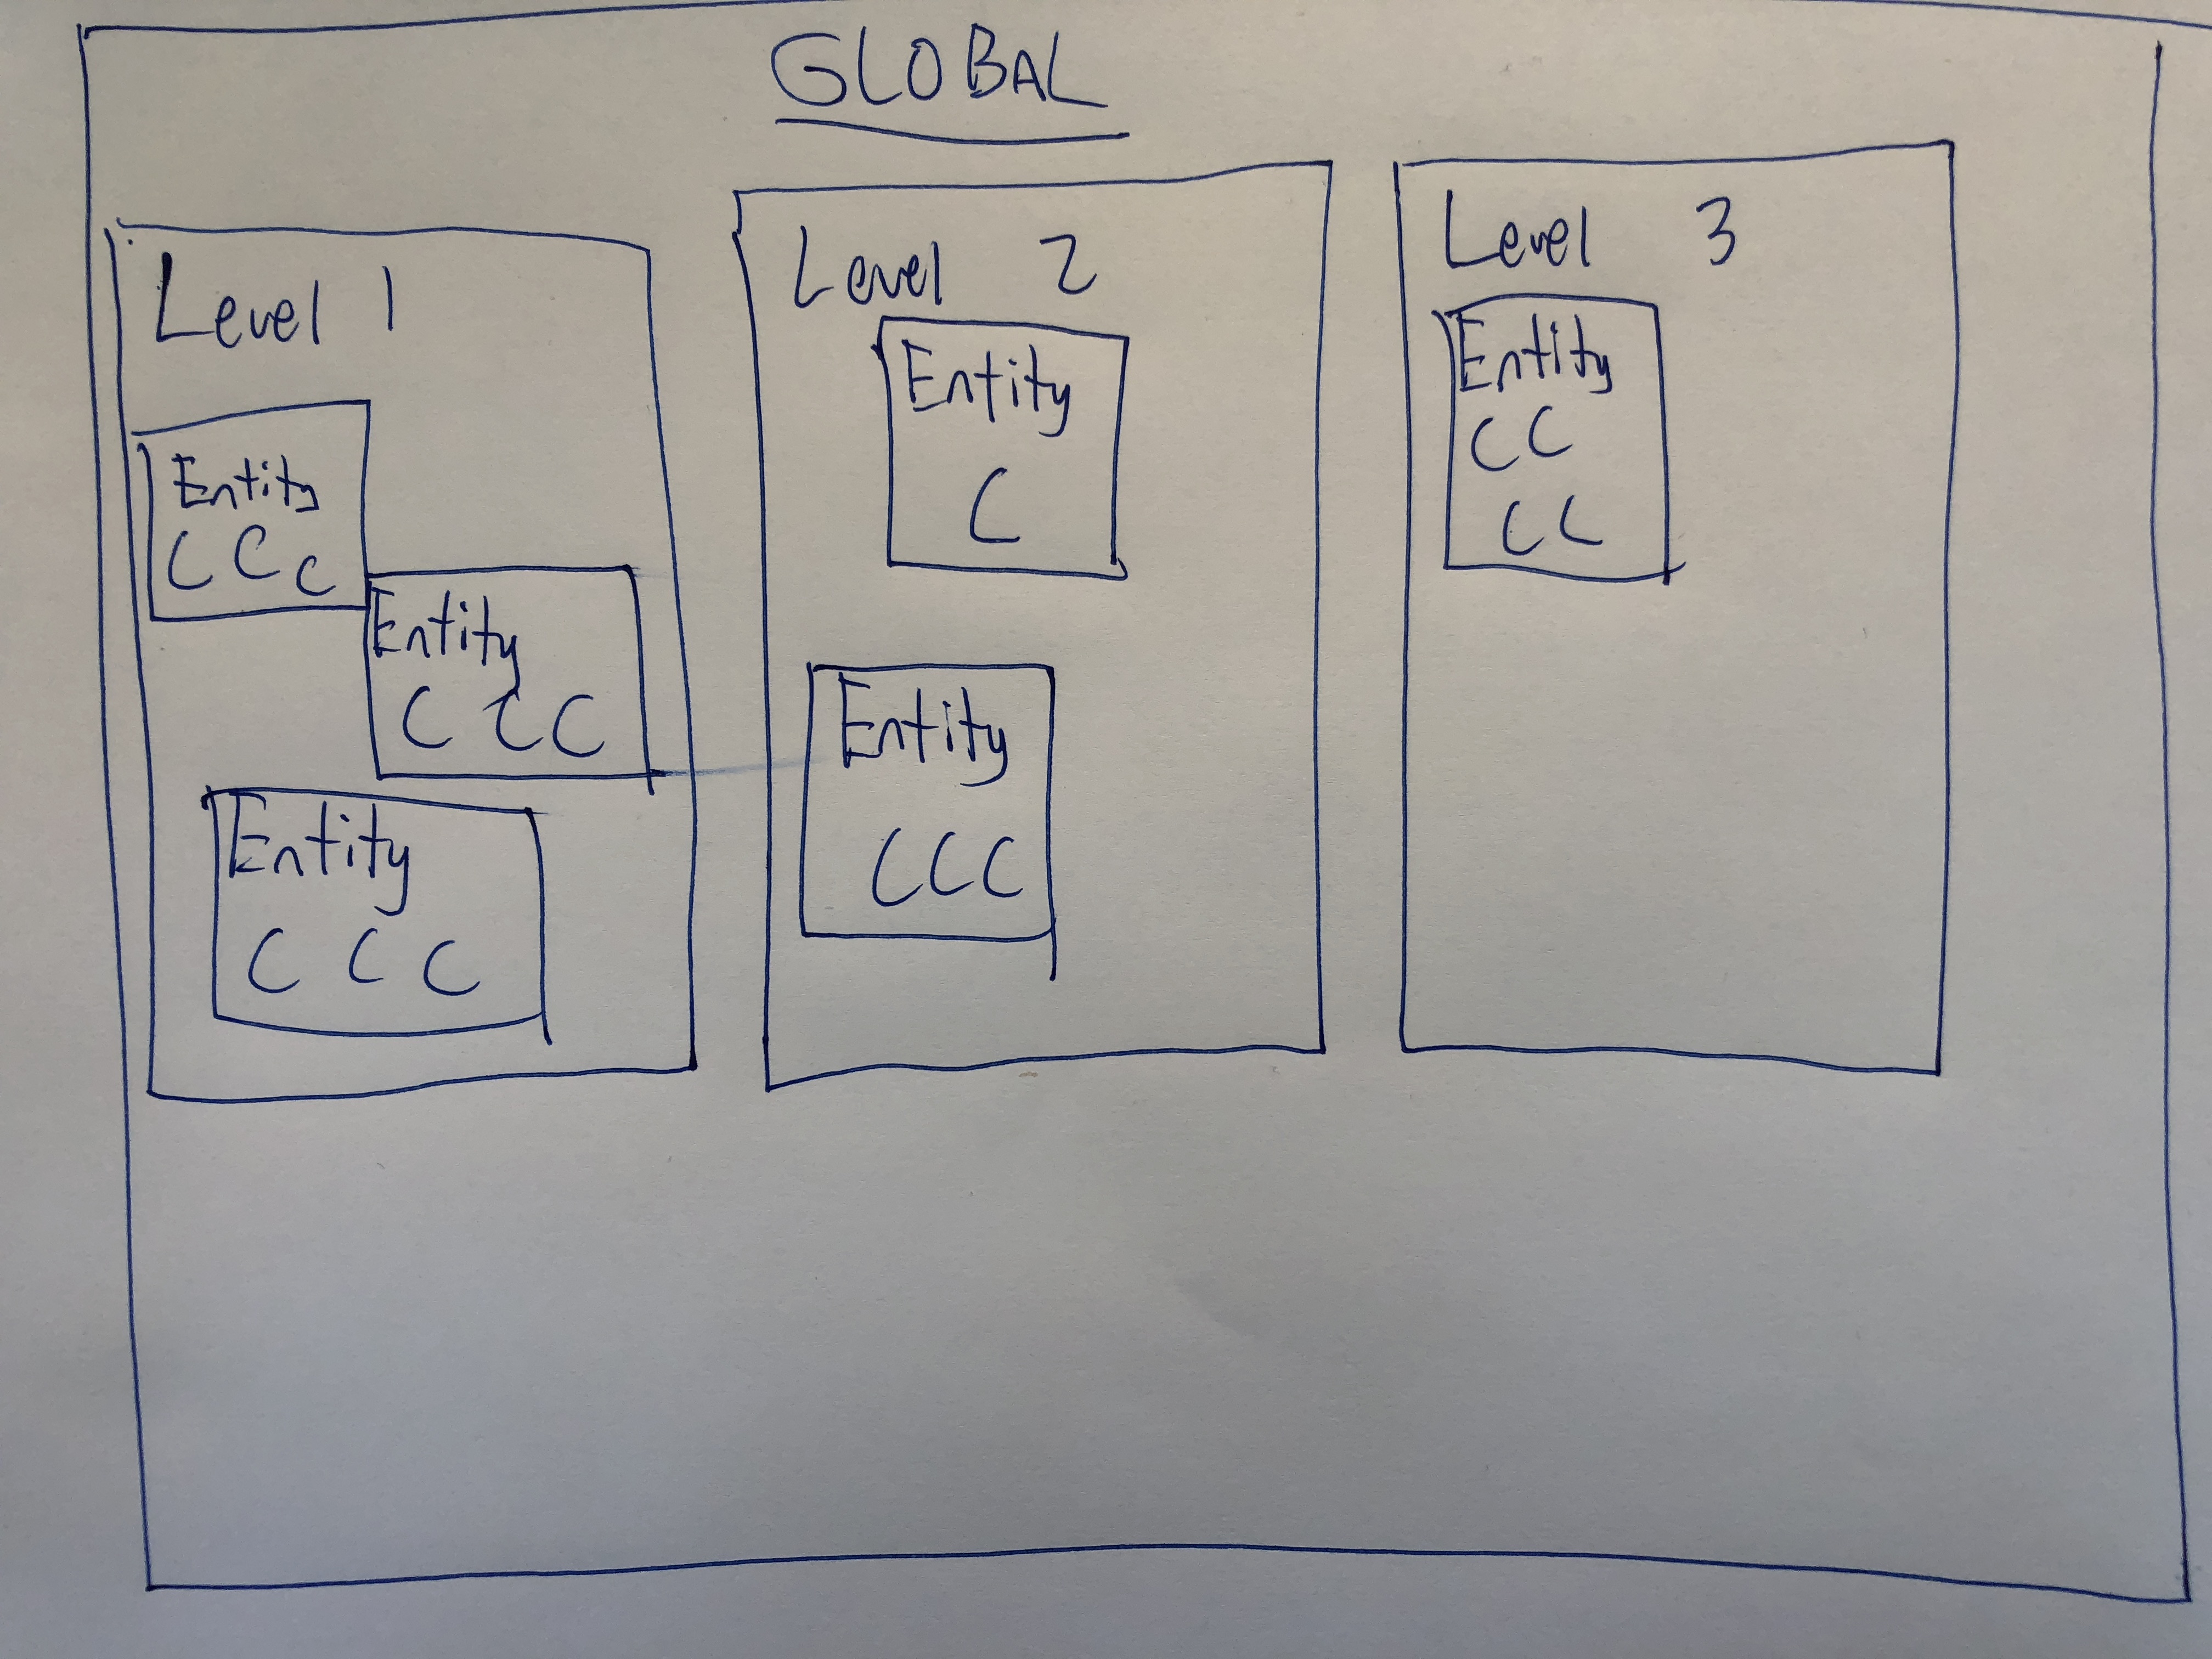 GLOBAL
Level 1
Entity
C C C
Entity
C C C
Entity
C C C
Level 2
Entity
C
Entity
C C C
Level 3
Entity
C C
C C